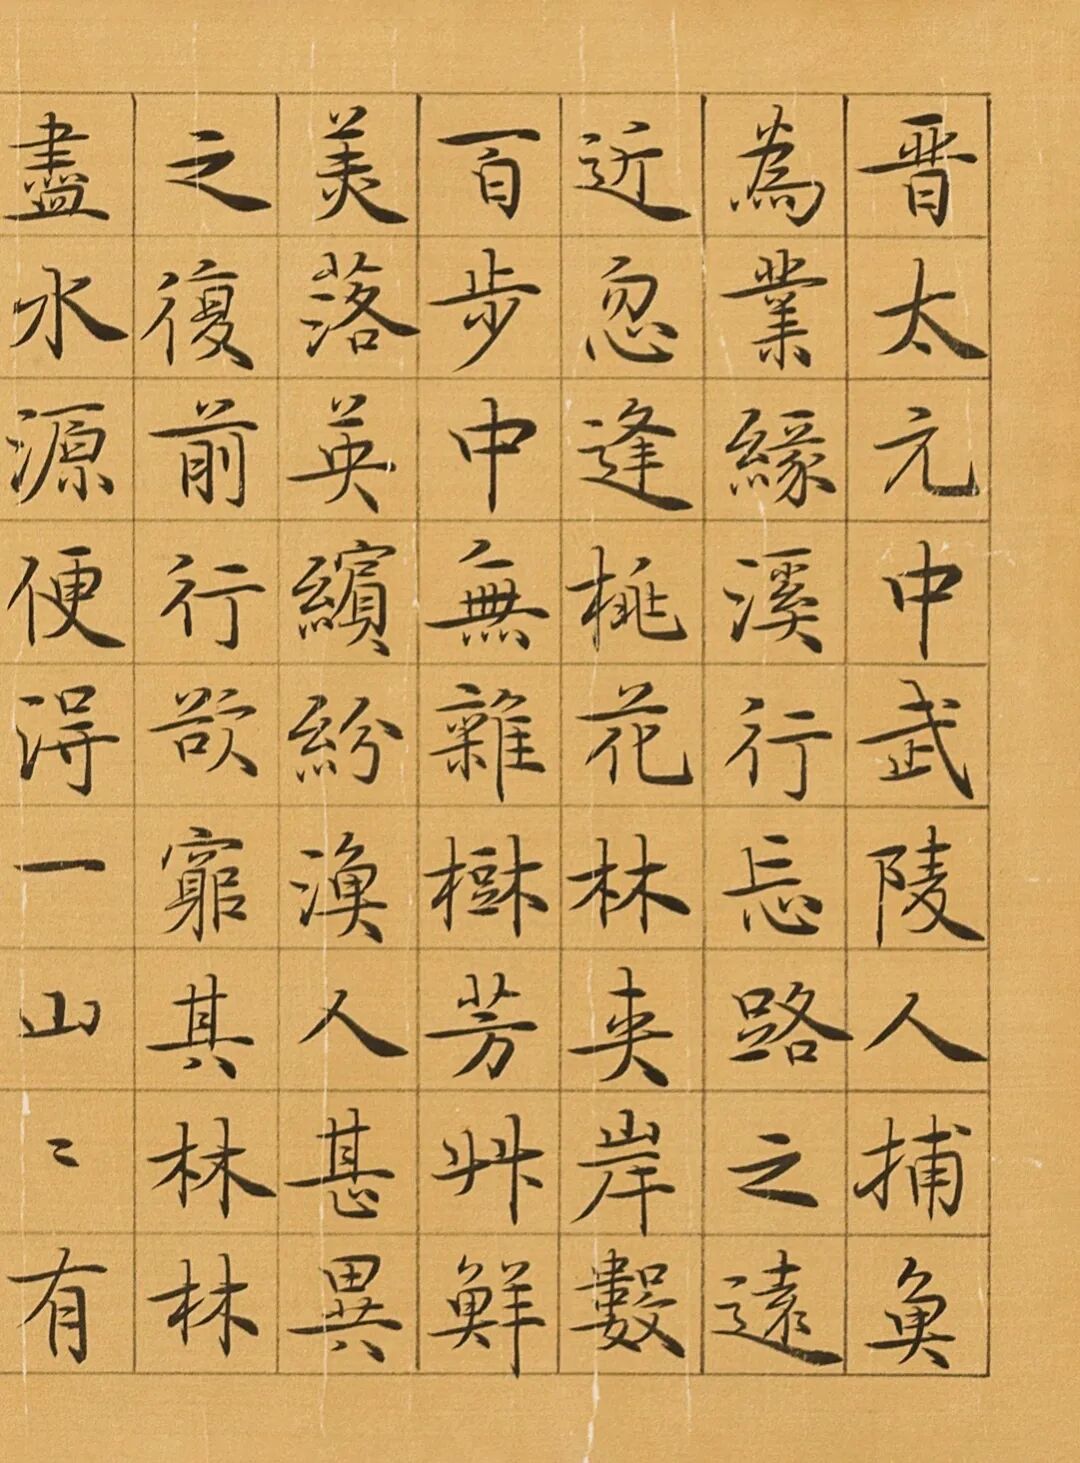 晉太元中武陵人捕魚
為業緣溪行忘路之遠
近忽逢桃花林夾岸數
百步中無雜樹芳艸鮮
美落英繽紛漁人甚異
之復前行欲窮其林林
盡水源便得一山〻有